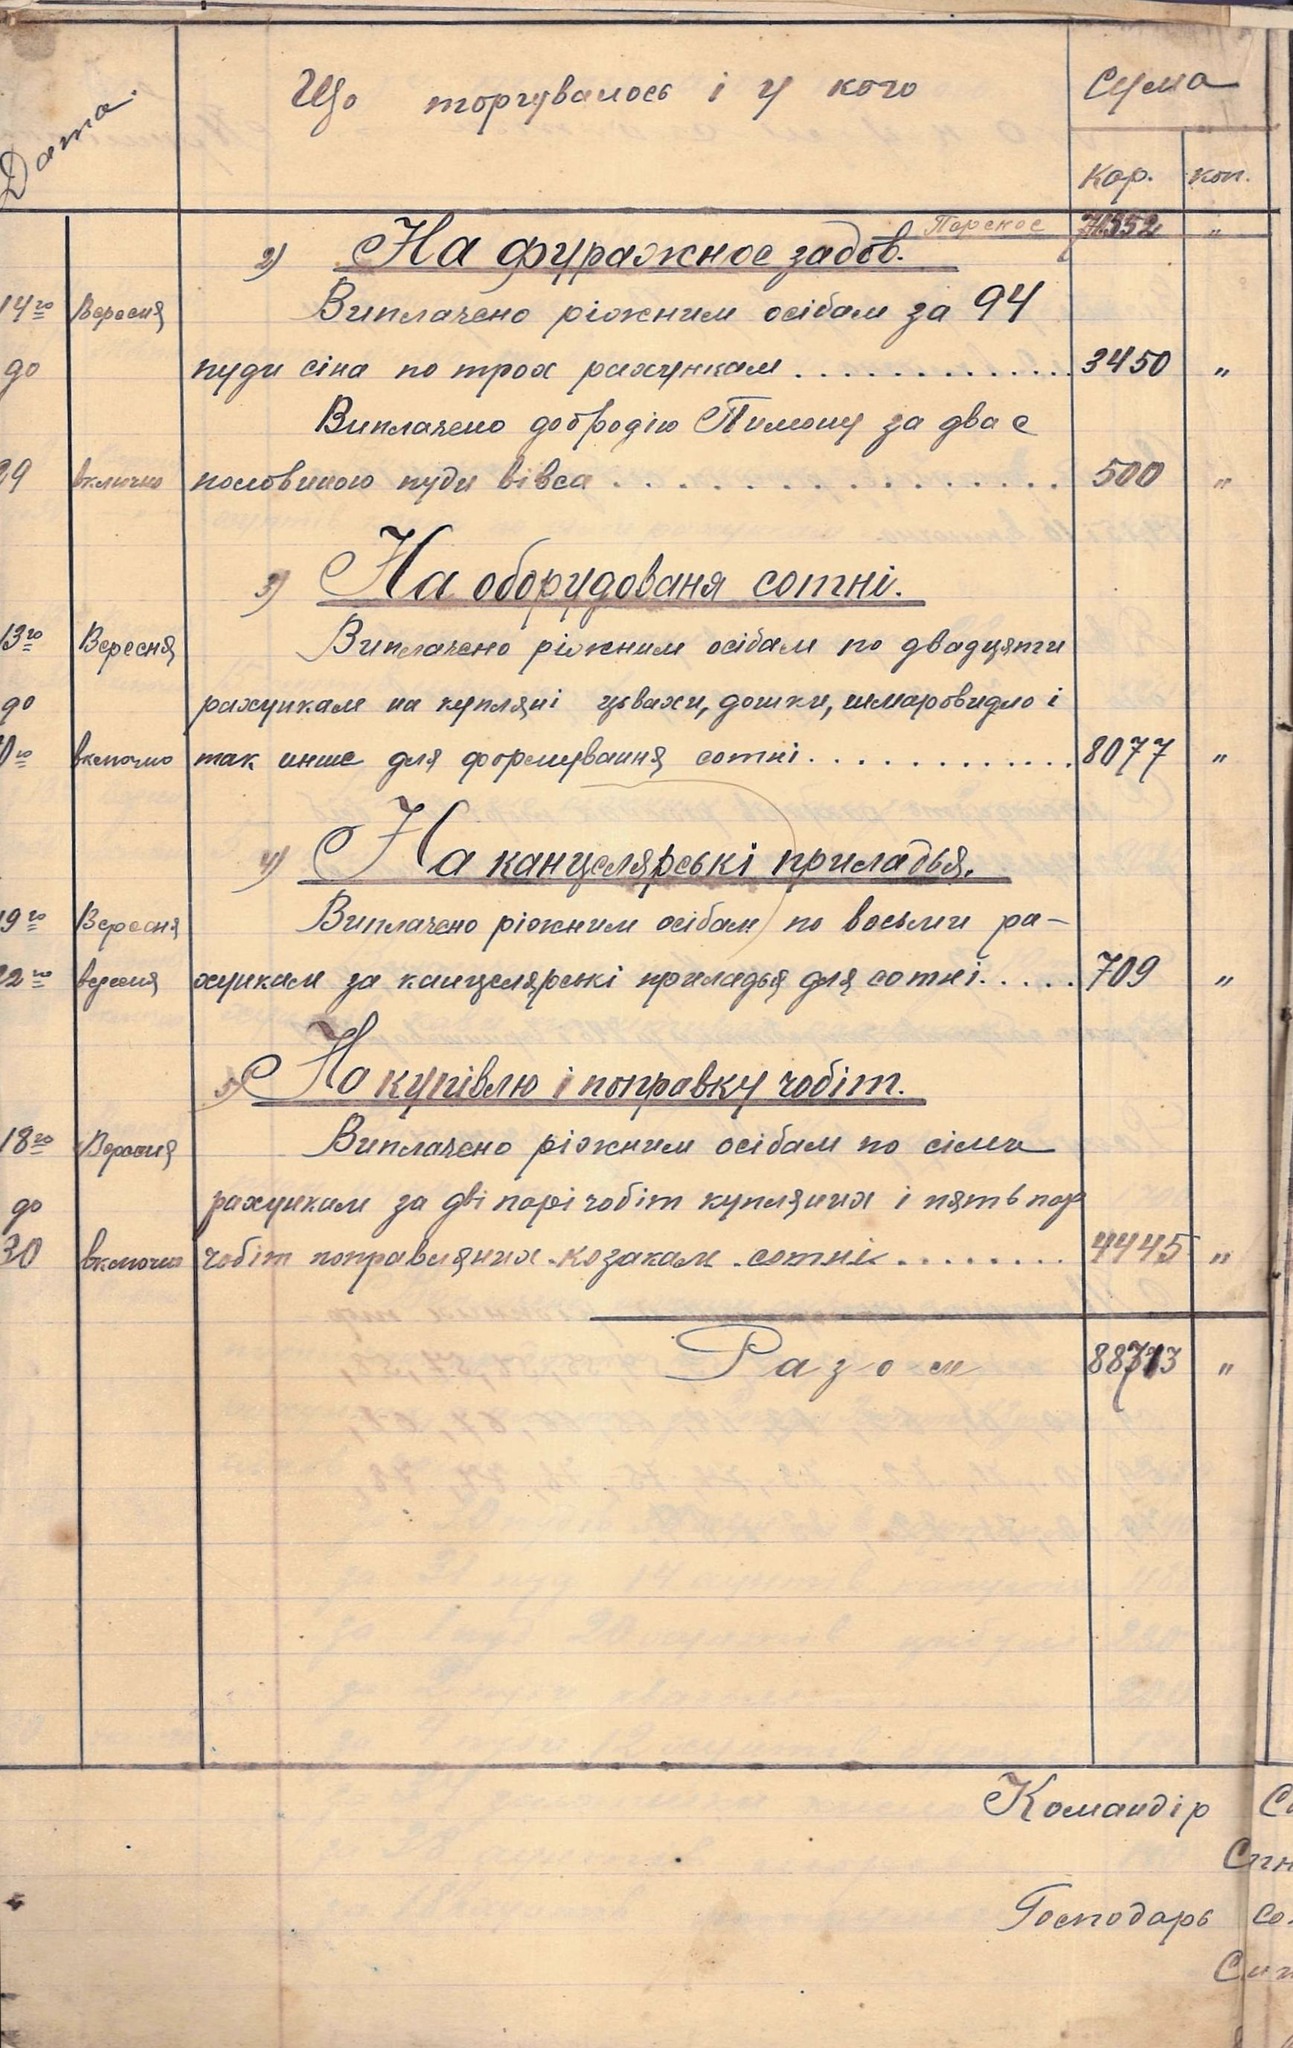 Дата.
Що торгувалось і у кого
Сума
Кар. коп.
Перенос 71552 "
2) На фуражное задов.
14го Вересня Виплачено ріжним осібам за 94
до пуди сіна по трох рахункам . . . . . . . . . . . . . 3450 "
Виплачено добродію Пимону за два с
29 включно половиною пуди вівса . . . . . . . . . . . . . . . . . 500 "
3) На оборудованя сотні.
13го Вересня Виплачено ріжним осібам по двадцяти
до рахункам на купляні цьвахи, дошки, шмаровидло і
0го включно так инше для формування сотні . . . . . . . . . . . . 8077 "
4) На канцелярські приладья.
19го Вересня Виплачено ріжним осібам по восьми ра-
22го вересня хункам за канцелярські приладья для сотні. . . . . 709 "
5) На купівлю і поправку чобіт.
18го Вересня Виплачено ріжним осібам по сіми
до рахункам за дві парі чобіт купляних і пять пар
30 включно чобіт поправляних козакам сотні . . . . . . . . 4445 "
Разом 88713 "
Командір
Господарь